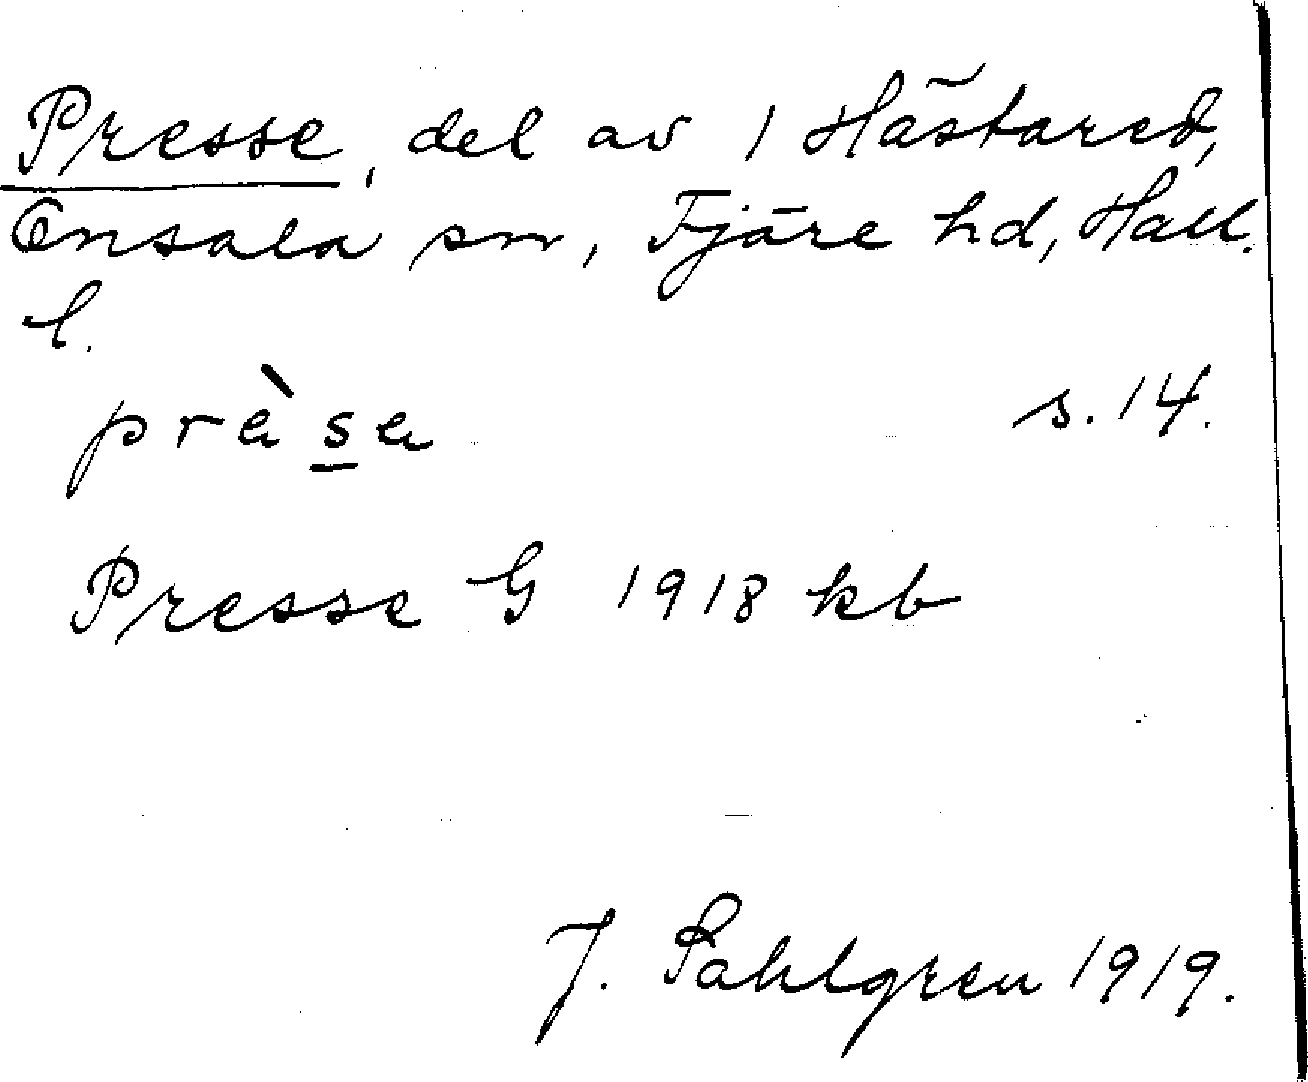 Presse, del av 1 Hästared,
Onsala sn, Fjäre hd, Hall.
l.
prèsa s. 14.
Presse G 1918 kb
J. Sahlgren 1919.